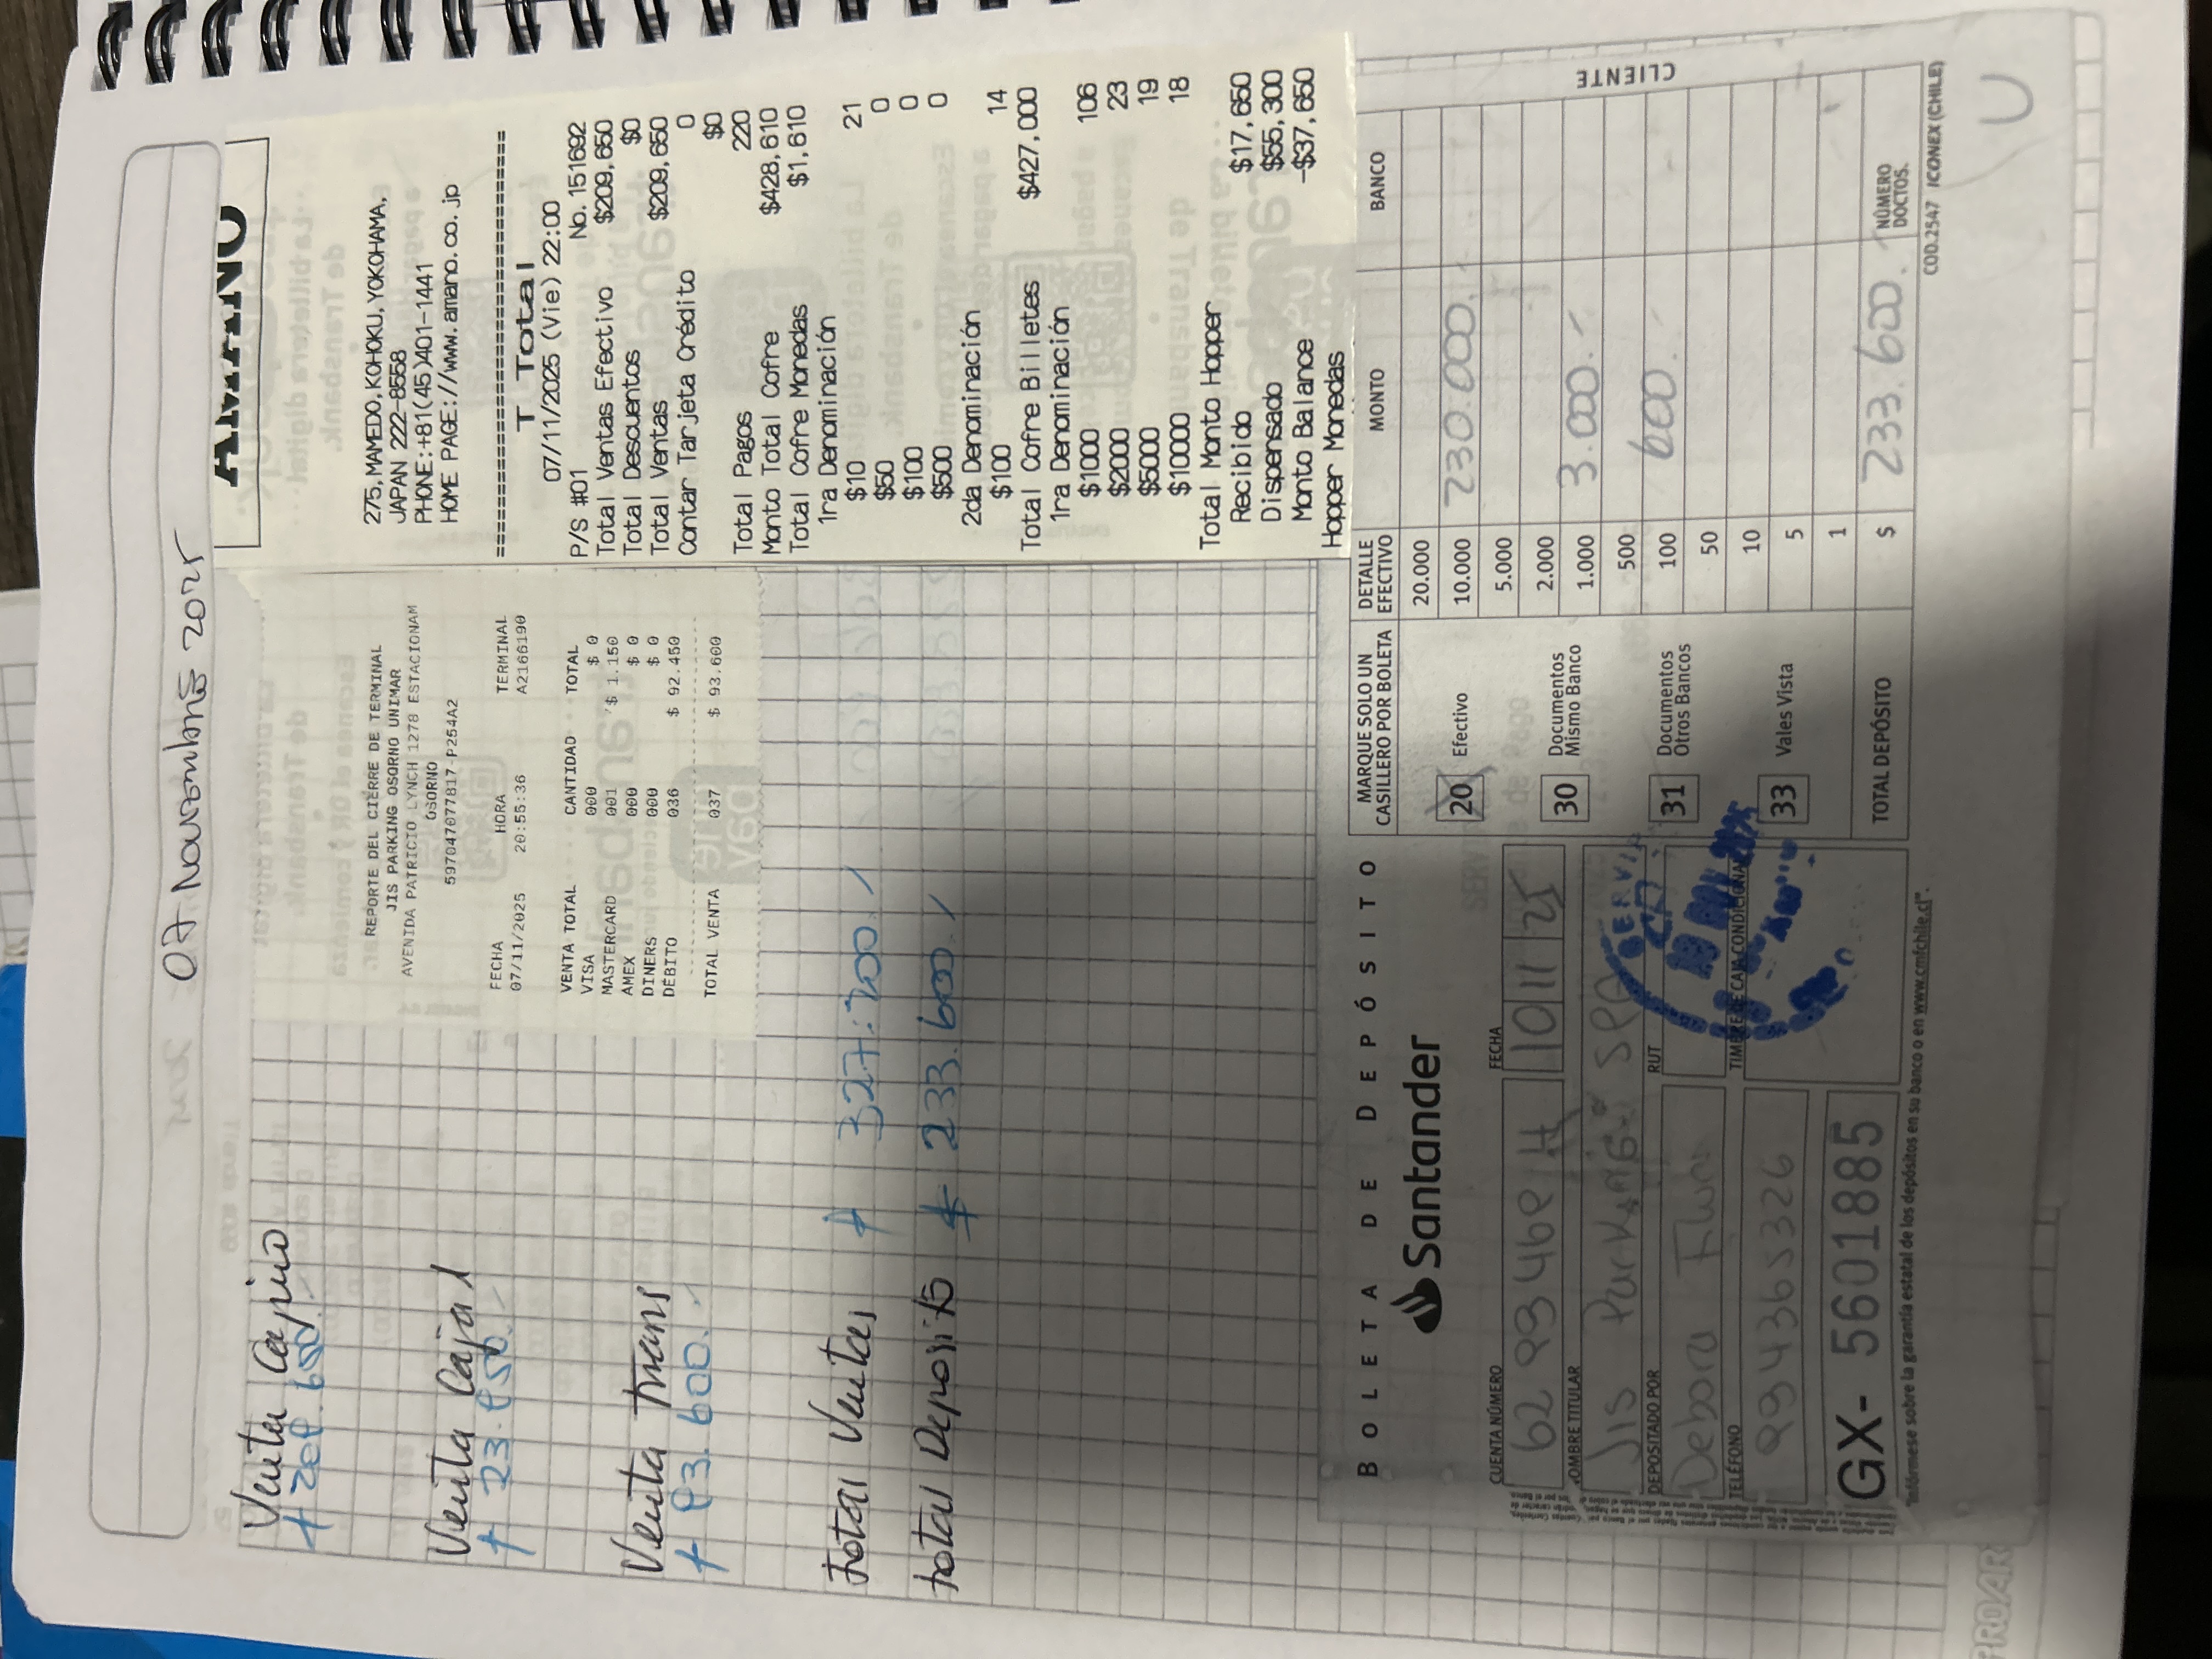 07 Noviembre 2025
Venta Cajero
$ 209.650.-
Venta Caja 1
$ 23.950.-
Venta Trans
$ 93.600.-
Total Ventas $ 327.200.-
Total Deposito $ 233.600.-
REPORTE DEL CIERRE DE TERMINAL
JIS PARKING OSORNO UNIMAR
AVENIDA PATRICIO LYNCH 1278 ESTACIONAM
OSORNO
597047077817-P254A2
FECHA HORA TERMINAL
07/11/2025 20:55:36 A2166190
VENTA TOTAL CANTIDAD TOTAL
VISA 000 $ 0
MASTERCARD 001 $ 1.150
AMEX 000 $ 0
DINERS 000 $ 0
DEBITO 036 $ 92.450
TOTAL VENTA 037 $ 93.600
AMANO
275, MAMEDO, KOHOKU, YOKOHAMA,
JAPAN 222-8558
PHONE:+81(45)401-1441
HOME PAGE://www.amano.co.jp
================================
T Total
07/11/2025 (Vie) 22:00
P/S #01 No. 151692
Total Ventas Efectivo $209,650
Total Descuentos $0
Total Ventas $209,650
Contar Tarjeta Crédito 0
$0
Total Pagos 220
Monto Total Cofre $428,610
Total Cofre Monedas $1,610
1ra Denominación
$10 21
$50 0
$100 0
$500 0
2da Denominación
$100 14
Total Cofre Billetes $427,000
1ra Denominación
$1000 106
$2000 23
$5000 19
$10000 18
Total Monto Hopper
Recibido $17,650
Dispensado $55,300
Monto Balance -$37,650
Hopper Monedas
BOLETA DE DEPÓSITO
Santander
CUENTA NÚMERO
FECHA
10 11 25
NOMBRE TITULAR
Jis Parking SPA
RUT
DEPOSITADO POR
Debora
TELÉFONO
993436S326
TIMBRE DE CAJA CONDICIONAL
GX- 5601885
"Infórmese sobre la garantía estatal de los depósitos en su banco o en www.cmfchile.cl".
MARQUE SOLO UN CASILLERO POR BOLETA
20 Efectivo
30 Documentos Mismo Banco
31 Documentos Otros Bancos
33 Vales Vista
DETALLE EFECTIVO MONTO BANCO
20.000
10.000 230.000.-
5.000
2.000
1.000 3.000.-
500
100 600.-
50
10
5
1
TOTAL DEPÓSITO $ 233.600.- NÚMERO DOCTOS.
CLIENTE
COD.2547 ICONEX (CHILE)